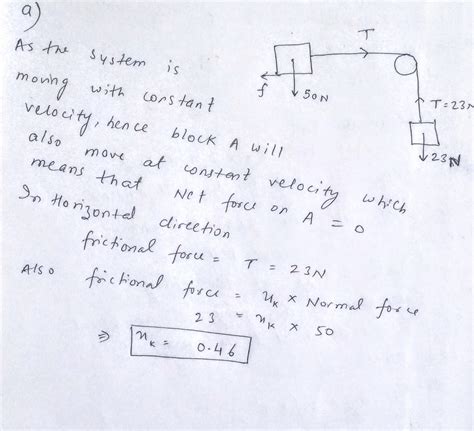 a)
As the system is
moving with constant
velocity, hence block A will
also move at constant velocity which
means that Net force on A = 0
In Horizontal direction
frictional force = T = 23N
Also frictional force = uk × Normal force
23 = uk × 50
⇒ uk = 0.46
T
f
50N
T=23N
23N